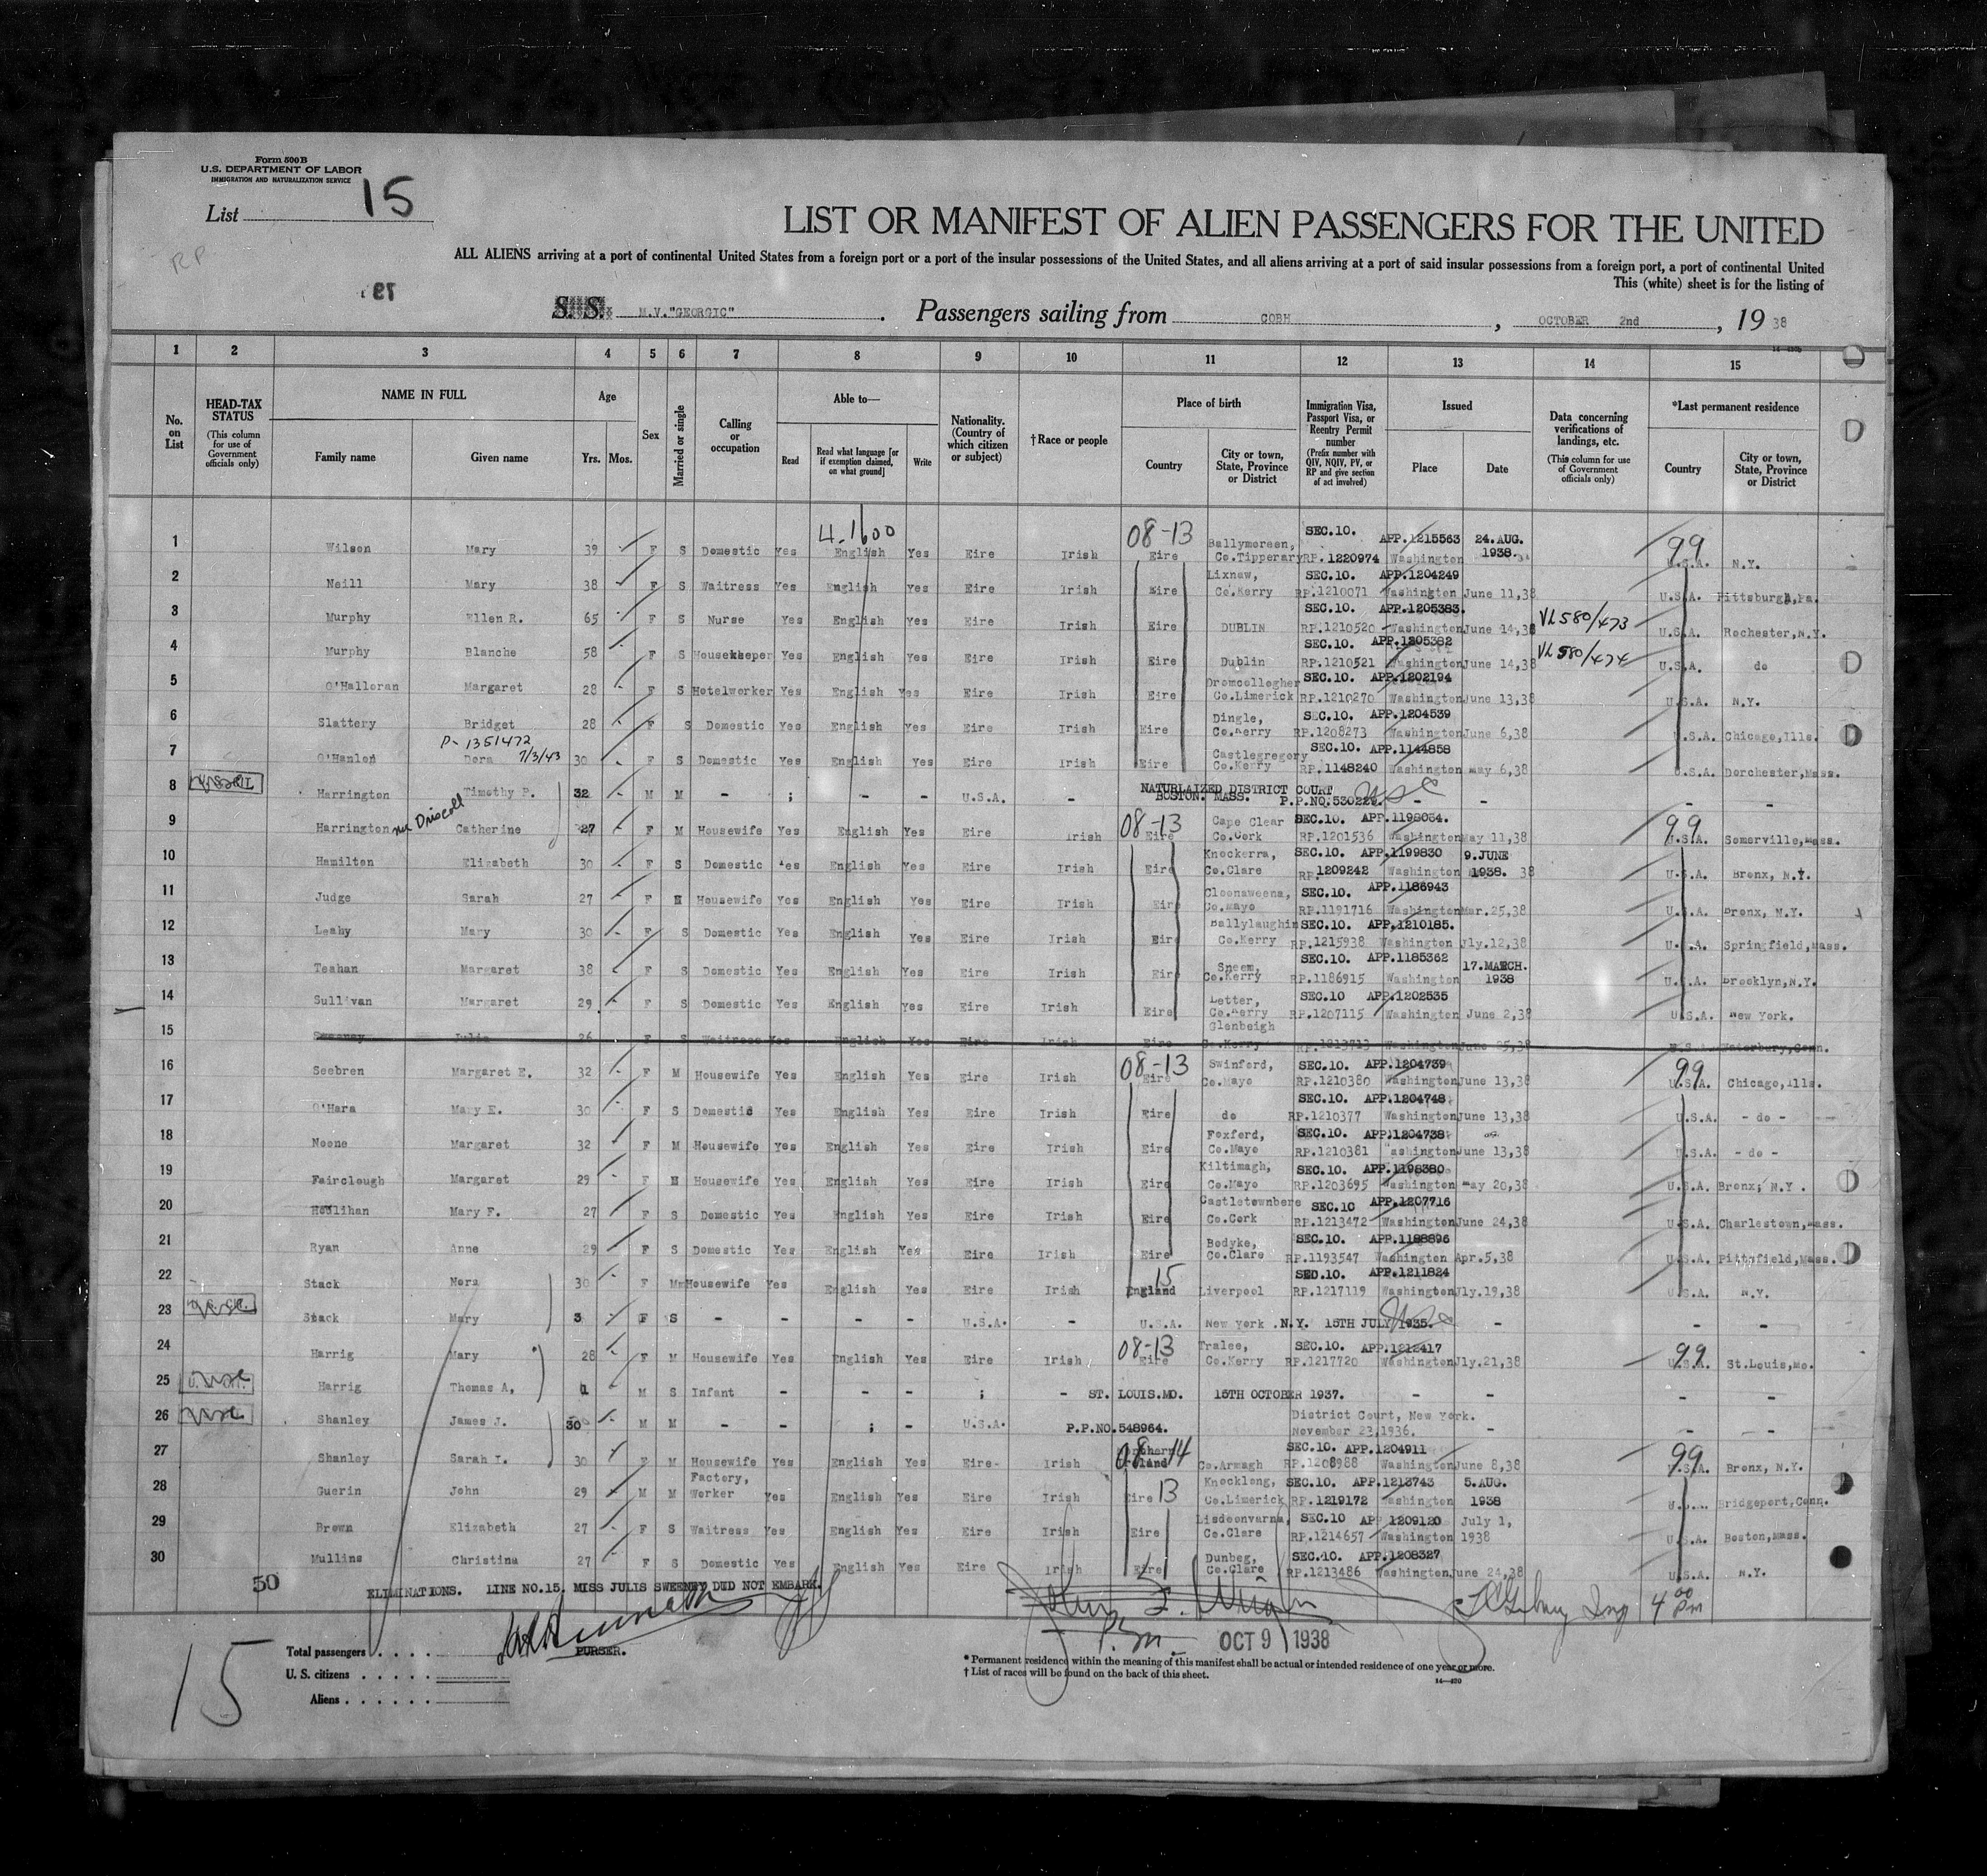 Form 500B
U.S. DEPARTMENT OF LABOR
IMMIGRATION AND NATURALIZATION SERVICE
List 15
RP
LIST OR MANIFEST OF ALIEN PASSENGERS FOR THE UNITED
ALL ALIENS arriving at a port of continental United States from a foreign port or a port of the insular possessions of the United States, and all aliens arriving at a port of said insular possessions from a foreign port, a port of continental United
This (white) sheet is for the listing of
S. S. M.V."GEORGIC". Passengers sailing from COBH, OCTOBER 2nd, 19 38
1 2 3 4 5 6 7 8 9 10 11 12 13 14 15
No. on List
HEAD-TAX STATUS (This column for use of Government officials only)
NAME IN FULL
Family name Given name
Age Yrs. Mos.
Sex
Married or single
Calling or occupation
Able to— Read Read what language [or if exemption claimed, on what ground] Write
Nationality. (Country of which citizen or subject)
†Race or people
Place of birth Country City or town, State, Province or District
Immigration Visa, Passport Visa, or Reentry Permit number (Prefix number with QIV, NQIV, PV, or RP and give section of act involved)
Issued Place Date
Data concerning verifications of landings, etc. (This column for use of Government officials only)
*Last permanent residence Country City or town, State, Province or District
4-1600 08-13 99
1 Wilson Mary 39 F S Domestic Yes English Yes Eire Irish Eire Ballymoreen, Co.Tipperary SEC.10. APP.1215563 RP.1220974 Washington 24.AUG. 1938. U.S.A. N.Y.
2 Neill Mary 38 F S Waitress Yes English Yes Eire Irish Eire Lixnaw, Co.Kerry SEC.10. APP.1204249 RP.1210071 Washington June 11,38 U.S.A. Pittsburgh,Pa.
3 Murphy Ellen R. 65 F S Nurse Yes English Yes Eire Irish Eire DUBLIN SEC.10. APP.1205383. RP.1210520 Washington June 14,38 VL580/473 U.S.A. Rochester,N.Y.
4 Murphy Blanche 58 F S Housekeeper Yes English Yes Eire Irish Eire Dublin SEC.10. APP.1205382 RP.1210521 Washington June 14,38 VL580/474 U.S.A. do
5 O'Halloran Margaret 28 F S Hotelworker Yes English Yes Eire Irish Eire Dromcollogher Co.Limerick SEC.10. APP.1202194 RP.1210270 Washington June 13,38 U.S.A. N.Y.
6 Slattery Bridget 28 F S Domestic Yes English Yes Eire Irish Eire Dingle, Co.Kerry SEC.10. APP.1204539 RP.1208273 Washington June 6,38 U.S.A. Chicago,Ills.
P-1351472 7/3/43
7 O'Hanlon Dora 30 F S Domestic Yes English Yes Eire Irish Eire Castlegregory Co.Kerry SEC.10. APP.1144858 RP.1148240 Washington May 6,38 U.S.A. Dorchester,Mass.
8 Harrington Timothy P. 32 M M - ; - - U.S.A. - NATURLAIZED DISTRICT COURT BOSTON. MASS. P.P.NO.530229. - - - -
9 Harrington nee Driscoll Catherine 27 F M Housewife Yes English Yes Eire Irish 08-13 Eire Cape Clear Co.Cork SEC.10. APP.1198034. RP.1201536 Washington May 11,38 99 U.S.A. Somerville,Mass.
10 Hamilton Elizabeth 30 F S Domestic Yes English Yes Eire Irish Eire Knockerra, Co.Clare SEC.10. APP.1199830 RP.1209242 Washington 9.JUNE 1938. 38 U.S.A. Bronx, N.Y.
11 Judge Sarah 27 F M Housewife Yes English Yes Eire Irish Eire Cloonaweena, Co.Mayo SEC.10. APP.1186943 RP.1191716 Washington Mar.25,38 U.S.A. Bronx, N.Y.
12 Leahy Mary 30 F S Domestic Yes English Yes Eire Irish Eire Ballylaughin Co.Kerry SEC.10. APP.1210185. RP.1215938 Washington Jly.12,38 U.S.A. Springfield,Mass.
13 Teahan Margaret 38 F S Domestic Yes English Yes Eire Irish Eire Sneem, Co.Kerry SEC.10. APP.1185362 RP.1186915 Washington 17.MARCH. 1938 U.S.A. Brooklyn,N.Y.
14 Sullivan Margaret 29 F S Domestic Yes English Yes Eire Irish Eire Letter, Co.Kerry SEC.10 APP.1202535 RP.1207115 Washington June 2,38 U.S.A. New York.
15 Sweeney Julia 26 F S Waitress Yes English Yes Eire Irish Eire Glenbeigh Co.Kerry RP.1213713 Washington June 25,38 U.S.A. Waterbury,Conn.
16 Seebren Margaret E. 32 F M Housewife Yes English Yes Eire Irish 08-13 Eire Swinford, Co.Mayo SEC.10. APP.1204739 RP.1210380 Washington June 13,38 99 U.S.A. Chicago,Ills.
17 O'Hara Mary E. 30 F S Domestic Yes English Yes Eire Irish Eire do SEC.10. APP.1204748. RP.1210377 Washington June 13,38 U.S.A. - do -
18 Noone Margaret 32 F M Housewife Yes English Yes Eire Irish Eire Foxford, Co.Mayo SEC.10. APP.1204738 RP.1210381 Washington June 13,38 U.S.A. - do -
19 Fairclough Margaret 29 F M Housewife Yes English Yes Eire Irish Eire Kiltimagh, Co.Mayo SEC.10. APP.1198380 RP.1203695 Washington May 20,38 U.S.A. Bronx; N.Y.
20 Houlihan Mary F. 27 F S Domestic Yes English Yes Eire Irish Eire Castletownbere Co.Cork SEC.10 APP.1207716 RP.1213472 Washington June 24,38 U.S.A. Charlestown,Mass.
21 Ryan Anne 29 F S Domestic Yes English Yes Eire Irish Eire Bodyke, Co.Clare SEC.10. APP.1188896 RP.1193547 Washington Apr.5,38 U.S.A. Pittsfield,Mass.
22 Stack Nora 30 F M Housewife Yes English Yes Eire Irish 15 England Liverpool SEC.10. APP.1211824 RP.1217119 Washington Jly.19,38 U.S.A. N.Y.
23 Stack Mary 3 F S - - - - U.S.A. - U.S.A. New York .N.Y. 15TH JULY 1935. - - -
24 Harrig Mary 28 F M Housewife Yes English Yes Eire Irish 08-13 Eire Tralee, Co.Kerry SEC.10. APP.1212417 RP.1217720 Washington Jly.21,38 99 U.S.A. St.Louis,Mo.
25 Harrig Thomas A. 1 M S Infant - - - ; - ST. LOUIS.MO. 15TH OCTOBER 1937. - - - -
26 Shanley James J. 30 M M - - ; - U.S.A. P.P.NO.548964. District Court, New York. November 23,1936. - - -
27 Shanley Sarah I. 30 F M Housewife Yes English Yes Eire- Irish 08-14 Northern Ireland Co.Armagh SEC.10. APP.1204911 RP.1208988 Washington June 8,38 99 U.S.A. Bronx, N.Y.
28 Guerin John 29 M M Factory, Worker Yes English Yes Eire Irish Eire 13 Knocklong, Co.Limerick SEC.10. APP.1213743 RP.1219172 Washington 5.AUG. 1938 U.S.A. Bridgeport,Conn.
29 Brown Elizabeth 27 F S Waitress Yes English Yes Eire Irish Eire Lisdoonvarna, Co.Clare SEC.10 APP.1209120 RP.1214657 Washington July 1, 1938 U.S.A. Boston,Mass.
30 Mullins Christina 27 F S Domestic Yes English Yes Eire Irish Eire Dunbeg, Co.Clare SEC.10. APP.1208327 RP.1213486 Washington June 24,38 U.S.A. N.Y.
50 ELIMINATIONS. LINE NO.15. MISS JULIS SWEENEY DID NOT EMBARK.
4 00 Pm
PURSER.
OCT 9 1938
15
Total passengers . . . .
U. S. citizens . . . . .
Aliens . . . . . .
* Permanent residence within the meaning of this manifest shall be actual or intended residence of one year or more.
† List of races will be found on the back of this sheet.
14—420